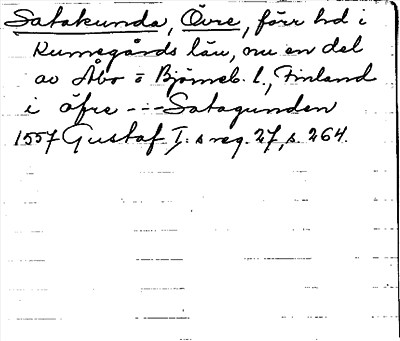 Satakunda, Övre, förr hd i
Kumogårds län, nu en del
av Åbo o Björneb. l., Finland
i öfre --- Satagunden
1557 Gustaf I:s reg. 27, s. 264.